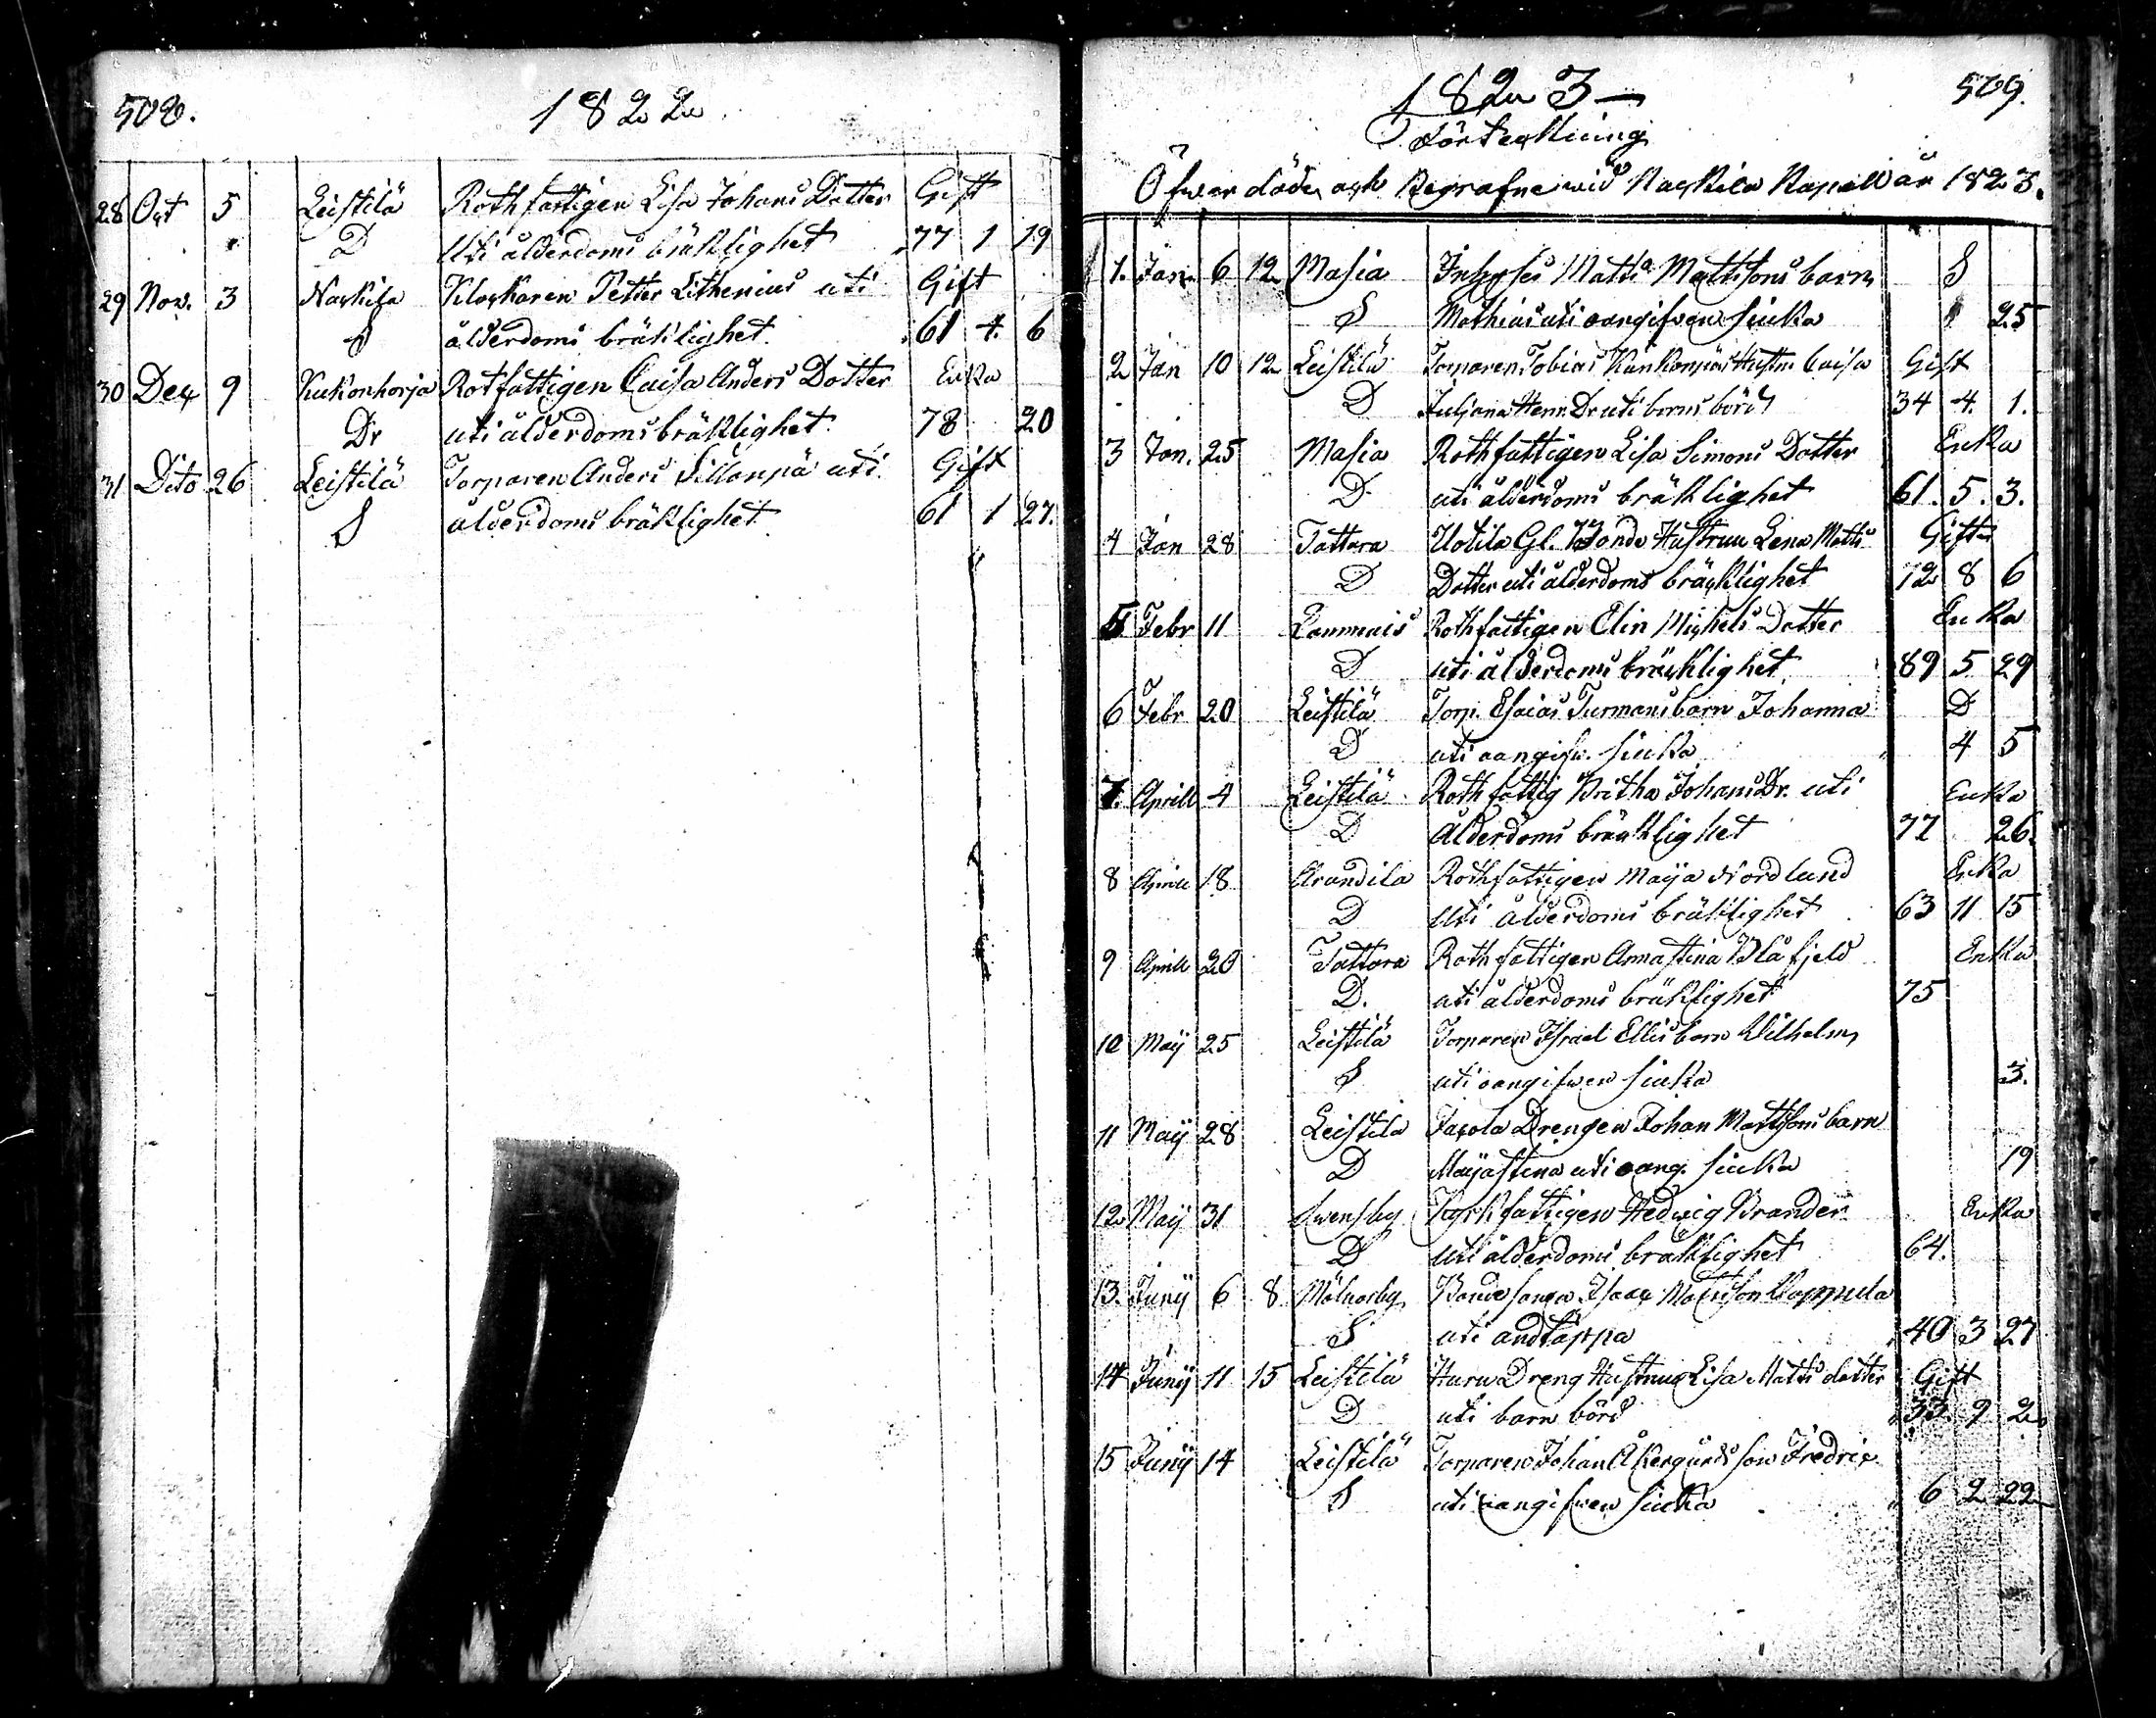 508.
1822
28 Oct 5 Leistilä Rothfattigen Lisa Johans Dotter Gift
D Uti ålderdoms bräklighet 77 1 19
29 Nov. 3 Nackila Klockaren Petter Lithenius uti Gift
S ålderdoms bräklighet 61 4 6
30 Dec 9 Kukonharja Rotfattigen Caisa Anders Dotter Enka
Dr uti ålderdoms bräklighet 78 20
31 Dito 26 Leistilä Torparen Anders Sillanpä uti Gift
S ålderdoms bräklighet 61 1 27.
1823
509.
Förteckning
Öfwer döda och Begrafne wid Nackila Kapell år 1823.
1. Jan. 6 12 Masia Matts Mattsons barn S
S Mathias uti oangifwen siuka 25
2 Jan 10 12 Leistilä Torparen Tobias Kankanpäs Hustru Caisa Gift
D Juliana Henr. Dr uti barns börd 34 4. 1.
3 Jan. 25 Masia Rothfattigen Lisa Simons Dotter Enka
D uti ålderdoms bräklighet 61. 5. 3.
4 Jan 28 Tattara Uotila Gl. Bonde Hustrun Lena Matts Gift
D Dotter uti ålderdoms bräcklighet 72 8 6
5 Febr 11 Lammais Rothfattigen Elin Michels Dotter Enka
D uti ålderdoms bräcklighet 89 5 29
6 Febr 20 Leistilä Torp. Esaias Turmans barn Johanna D
D uti oangifw. siuka 4 5
7. Aprill 4 Leistilä Rothfattig Britha Johans Dr. uti Enka
D Ålderdoms bräcklighet 77 26.
8 Aprill 18 Arandila Rothfattigen Maija Nordlund Enka
D Uti ålderdoms bräklighet 63 11 15
9 Aprill 20 Tattara Rothfattigen Annastina Blåfjeld Enka
D. uti ålderdoms bräklighet 75
10 Maij 25 Leistilä Torparen Israel Ellis barn Wilhelm
S uti oangifwen siuka 3.
11 Maij 28 Leistila Drengen Johan Mattssons barn
D Maijastina uti oang. siuka 19
12 Maij 31 Swensby Kyrkfattigen Hedwig Brander Enka
D uti ålderdoms bräklighet 64.
13. Junij 6 8 Mälnarby Bondesonen Isaac Mattsson Kappula
S uti andtäppa 40 3 27
14 Junij 11 15 Leistilä Haru Dreng Hustrun Lisa Matts dotter Gift
D uti barn börd 33. 9 2
15 Junij 14 Leistilä Torparen Johan Åkerqvists son Fredric
S uti oangifwen siuka 6 2 22